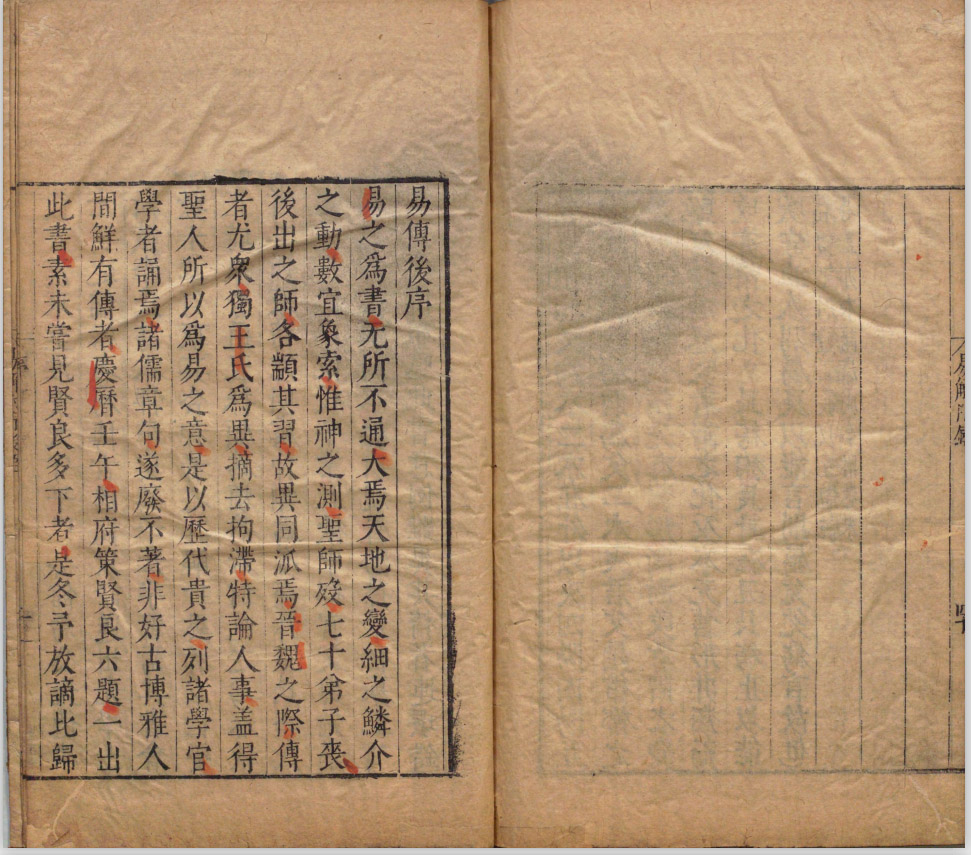 易解附錄
易傳後序
易之爲書无所不通大焉天地之變細之鱗介
之動數宜象索惟神之測聖師歿七十弟子喪
後出之師各顓其習故異同派焉晉魏之際傳
者尤衆獨王氏爲異摘去拘滯特論人事盖得
聖人所以爲易之意是以歷代貴之列諸學官
學者誦焉諸儒章句遂廢不著非好古博雅人
間鮮有傳者慶曆壬午相府策賢良六題一出
此書素未嘗見賢良多下者是冬予放謫北歸